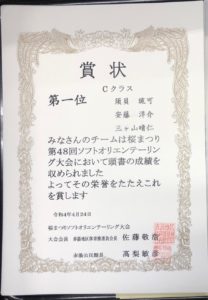 賞状
Cクラス
第一位
安藤 淳介
三ヶ山晴仁
みなさんのチームは桜まつり
第48回ソフトオリエンテーリン
グ大会において頭書の成績を
収められました
よってその栄誉をたたえこれ
を賞します
令和4年4月24日
桜まつりソフトオリエンテーリング大会
大会会長
佐藤敬
高梨敏彦